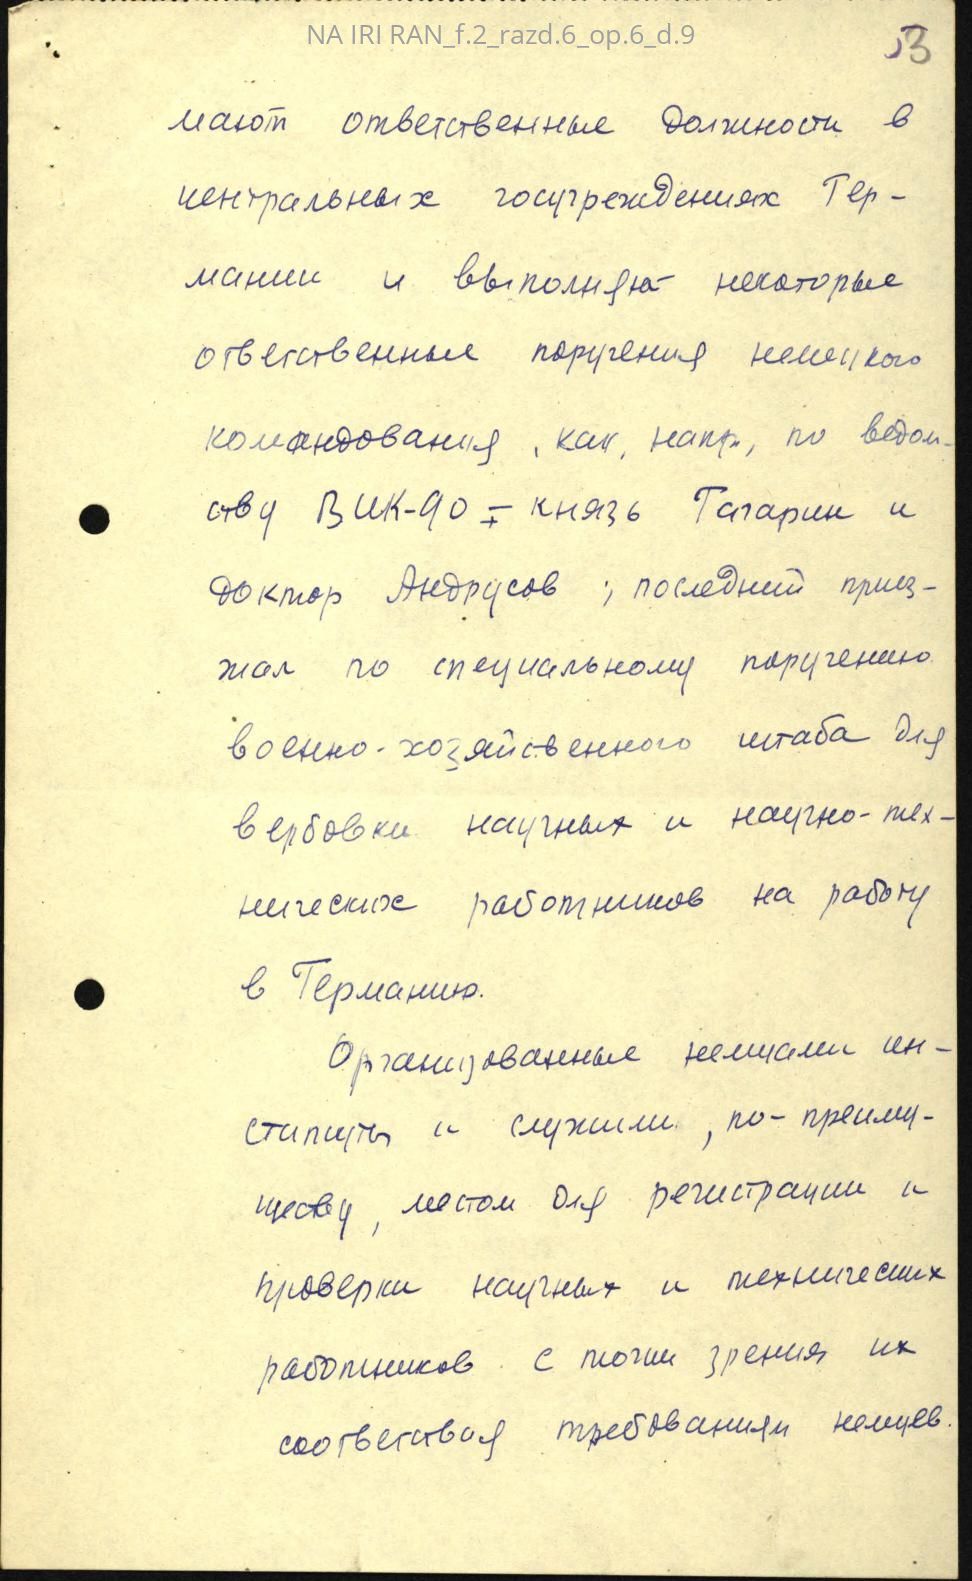 NA IRI RAN_f.2_razd.6_op.6_d.9
53
мают ответственные должности в
центральных госучреждениях Гер-
мании и выполняют некоторые
ответственные поручения немецкого
командования, как, напр., по ведом-
ству ВИК-90 - князь Гагарин и
доктор Андрусов; последний приез-
жал по специальному поручению
военно-хозяйственного штаба для
вербовки научных и научно-тех-
нических работников на работу
в Германию.
Организованные немцами ин-
ституты и служили, по-преиму-
ществу, местом для регистрации и
проверки научных и технических
работников с точки зрения их
соответствия требованиям немцев.